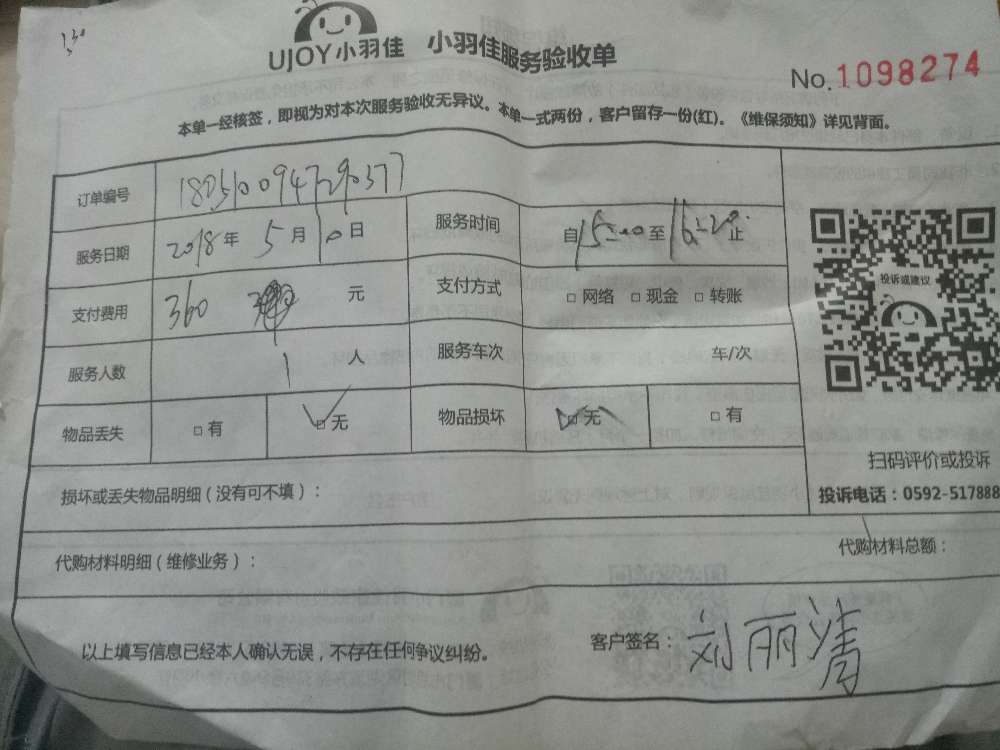 130
UJOY小羽佳 小羽佳服务验收单
No.1098274
本单一经核签，即视为对本次服务验收无异议。本单一式两份，客户留存一份(红)。《维保须知》详见背面。
订单编号 1805100947290377
服务日期 2018年5月10日 服务时间 自15:00至16:20止
支付费用 360 元 支付方式 □网络 □现金 □转账
投诉或建议
服务人数 1人 服务车次 车/次
物品丢失 □有 □无 物品损坏 □无 □有
扫码评价或投诉
损坏或丢失物品明细（没有可不填）：
投诉电话：0592-517888
代购材料明细（维修业务）： 代购材料总额：
以上填写信息已经本人确认无误，不存在任何争议纠纷。 客户签名：刘丽清